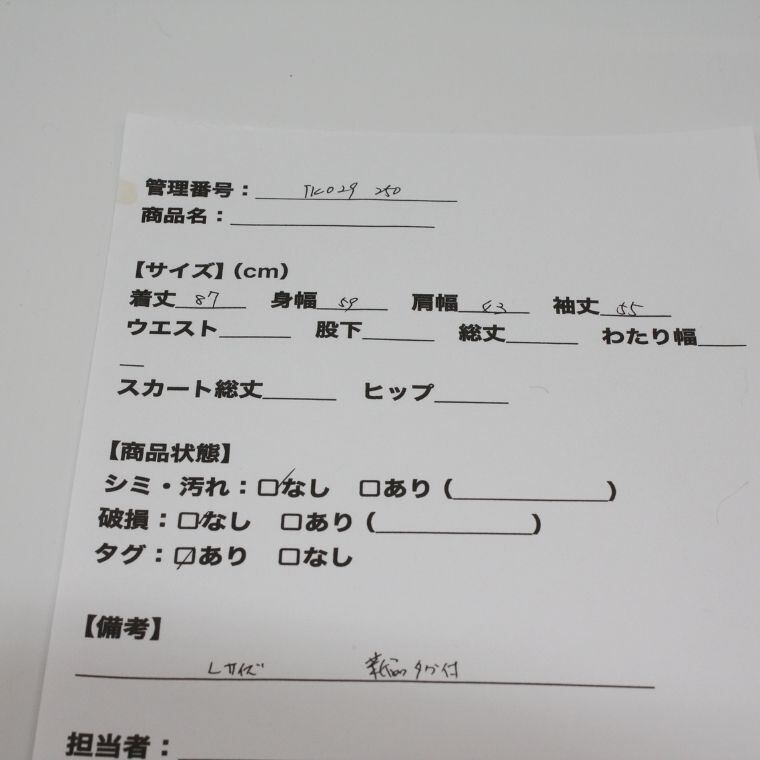 管理番号：TK029 250
商品名：
【サイズ】(cm)
着丈 87 身幅 59 肩幅 43 袖丈 55
ウエスト 股下 総丈 わたり幅
スカート総丈 ヒップ
【商品状態】
シミ・汚れ：☑なし □あり（ ）
破損：☑なし □あり（ ）
タグ：☑あり □なし
【備考】
Lサイズ 新品タグ付
担当者：